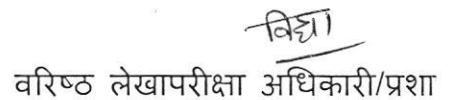 विद्या
वरिष्ठ लेखापरीक्षा अधिकारी/प्रशा